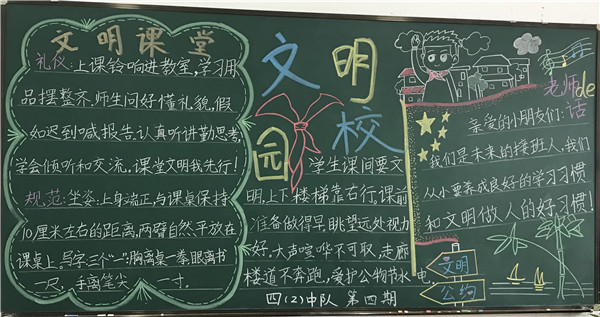 文明课堂
礼仪:上课铃响进教室,学习用
品摆整齐.师生问好懂礼貌,假
如迟到喊报告.认真听讲勤思考,
学会倾听和交流,课堂文明我先行!
规范:坐姿:上身端正,与课桌保持
10厘米左右的距离,两臂自然平放在
课桌上。写字三个“一”:胸离桌一拳眼离书
一尺,手离笔尖一寸。
文明校园
学生课间要文
明,上下楼梯靠右行.课前
准备做得早,眺望远处视力
好。大声喧哗不可取,走廊
楼道不奔跑,爱护公物节水电
四(2)中队 第四期
老师de话
亲爱的小朋友们:
我们是未来的接班人,我们
从小要养成良好的学习习惯
和文明做人的好习惯!
文明
公约